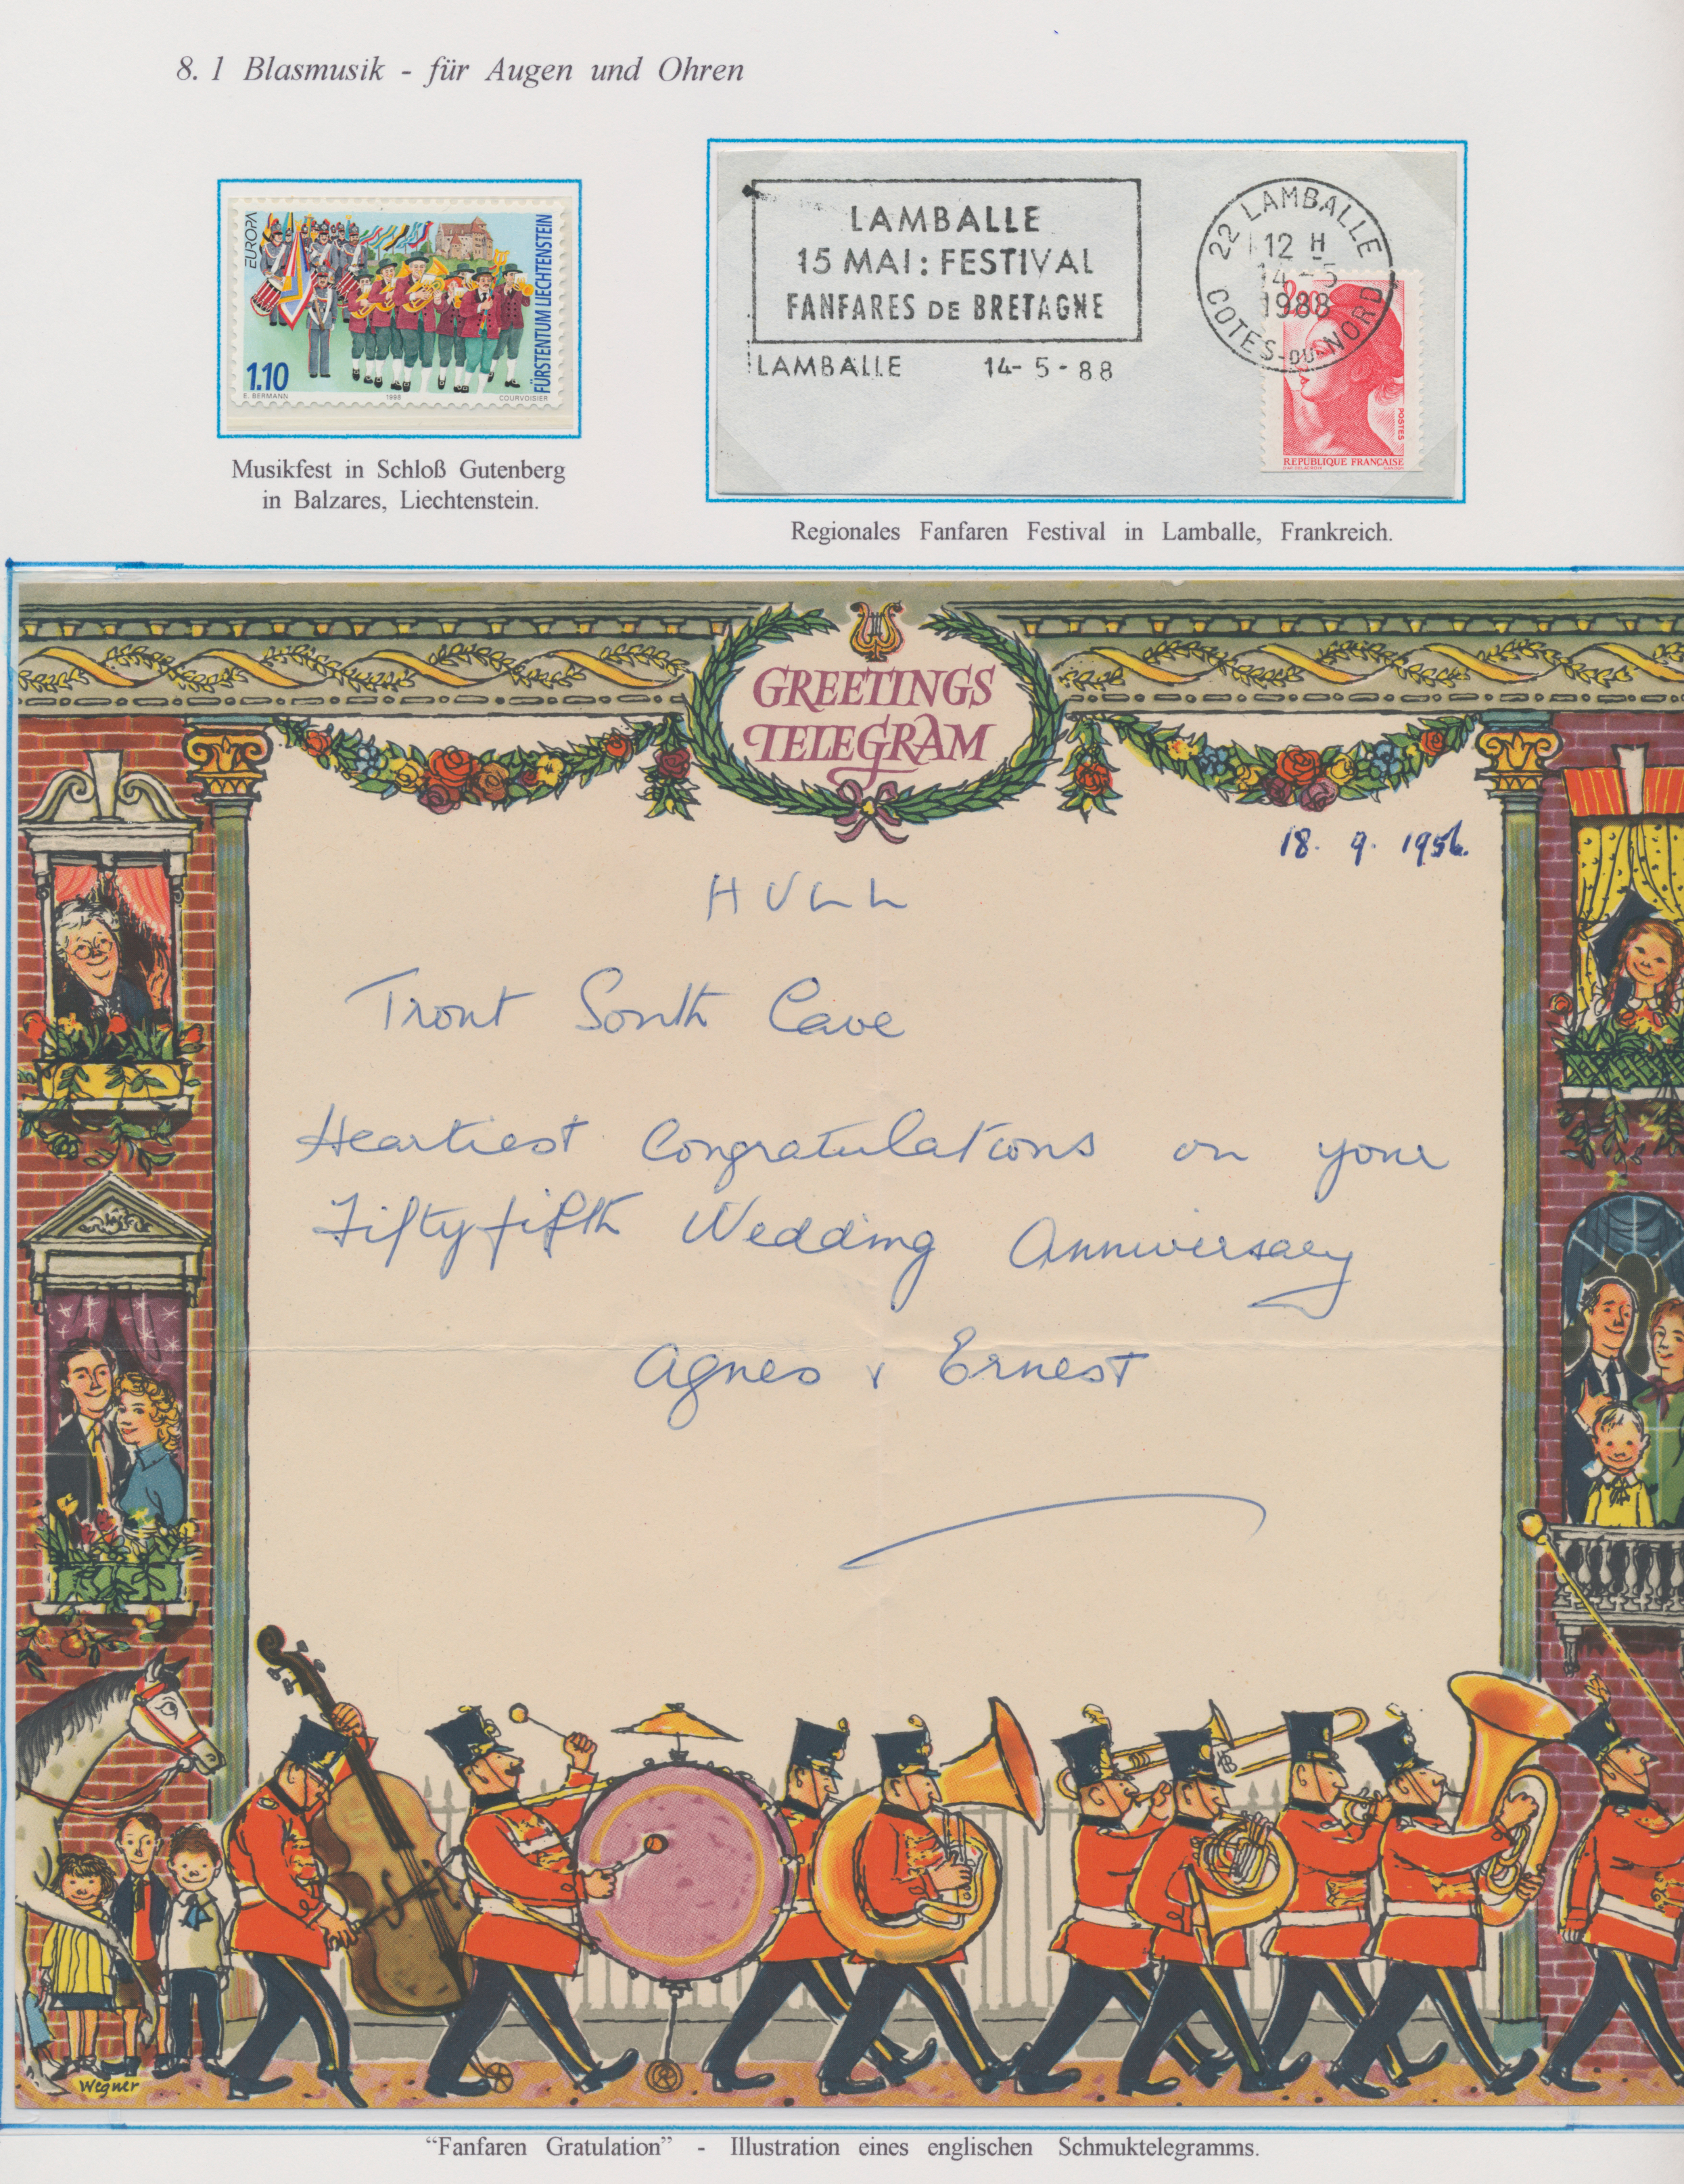 8. 1 Blasmusik - für Augen und Ohren
EUROPA
FÜRSTENTUM LIECHTENSTEIN
1.10
E. BERMANN 1998 COURVOISIER
Musikfest in Schloß Gutenberg
in Balzares, Liechtenstein.
LAMBALLE
15 MAI : FESTIVAL
FANFARES DE BRETAGNE
LAMBALLE 14-5-88
22 LAMBALLE
12 H
14-5
1988
COTES-DU-NORD
POSTES
REPUBLIQUE FRANÇAISE
Regionales Fanfaren Festival in Lamballe, Frankreich.
GREETINGS
TELEGRAM
18. 9. 1956.
HULL
Trout South Cave
Heartiest Congratulations on your
Fifty fifth Wedding Anniversary
Agnes & Ernest
Wegner
“Fanfaren Gratulation” - Illustration eines englischen Schmuktelegramms.